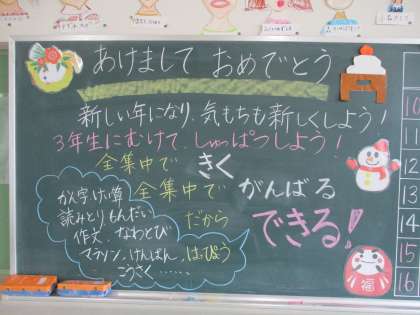 あけまして おめでとう
新しい年になり、気もちも新しくしよう!
3年生にむけて、しゅっぱつしよう!
全集中で きく
全集中で がんばる
だから できる!
かん字、計算
読みとりもんだい
作文、なわとび
マラソン、けんばん、はっぴょう
こうさく……
福
10
11
12
13
14
15
16